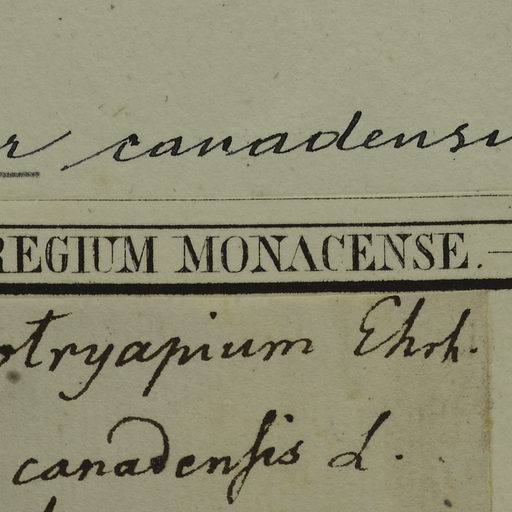 r canadensi
REGIUM MONACENSE.—
otryapium Ehrh.
canadenſis L.